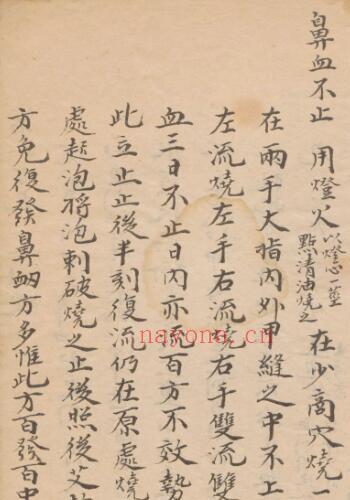 鼻血不止 用燈火以燈心一莖點清油燒之在少商穴燒一
在兩手大指內外甲縫之中不上
左流燒左手右流燒右手雙流雙
血三日不止日內亦流百方不效勢
此立止止後半刻復流仍在原處燒
處起泡將泡刺破燒之止後照後艾
方免復發鼻衂方多惟此方百發百中
nayona.cn